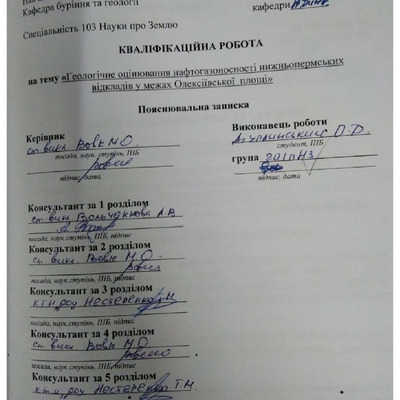 Кафедра буріння та геології
кафедри
Спеціальність 103 Науки про Землю
КВАЛІФІКАЦІЙНА РОБОТА
на тему «Геологічне оцінювання нафтогазоносності нижньопермських
відкладів у межах Олексіївської площі»
Пояснювальна записка
Керівник
ст. викл. Вовк М.О.
посада, наук. ступінь, ПІБ
підпис, дата,
Виконавець роботи
П. Д.
студент, ПІБ
група 201пНЗ
підпис, дата
Консультант за 1 розділом
ст. викл. Вольченкова А.В.
посада, наук.ступінь, ПІБ, підпис
Консультант за 2 розділом
ст. викл. Вовк М.О.
посада, наук.ступінь, ПІБ, підпис
Консультант за 3 розділом
к.т.н., доц. Нестеренко Т.М.
посада, наук.ступінь, ПІБ, підпис
Консультант за 4 розділом
ст. викл. Вовк М.О.
посада, наук.ступінь, ПІБ, підпис
Консультант за 5 розділом
к.т.н., доц. Нестеренко Т.М.
посада, наук.ступінь, ПІБ, підпис